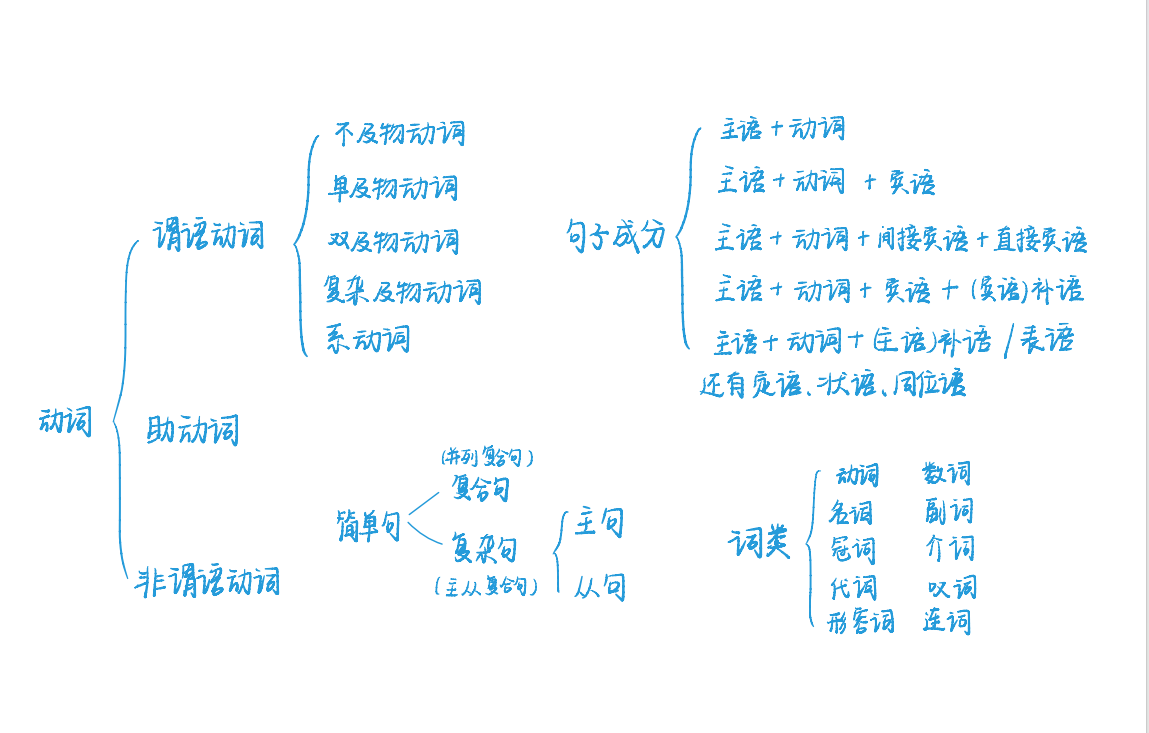 动词
谓语动词
不及物动词
单及物动词
双及物动词
复杂及物动词
系动词
助动词
非谓语动词
句子成分
主语+动词
主语+动词+宾语
主语+动词+间接宾语+直接宾语
主语+动词+宾语+(宾语)补语
主语+动词+(主语)补语/表语
还有定语、状语、同位语
简单句
(并列复合句)
复合句
复杂句
(主从复合句)
主句
从句
词类
动词 数词
名词 副词
冠词 介词
代词 叹词
形容词 连词